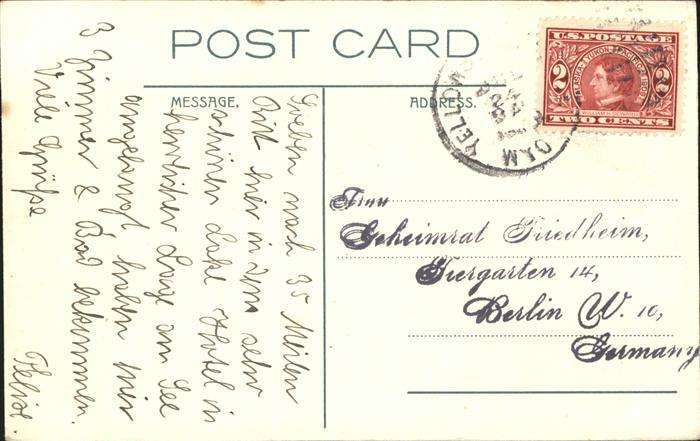 POST CARD
MESSAGE.
ADDRESS.
U.S. POSTAGE
ALASKA-YUKON-PACIFIC 1909
2 2
TWO CENTS
YELL
Soeben nach 35 Meilen
hier in dem sehr
schönen Lake Hotel in
herrlicher Lage am See
angelangt haben wir
3 Zimmer & Bad bekommen.
Viele Grüße
Felix.
Frau
Geheimrat Friedheim,
Tiergarten 14,
Berlin W. 10,
Germany